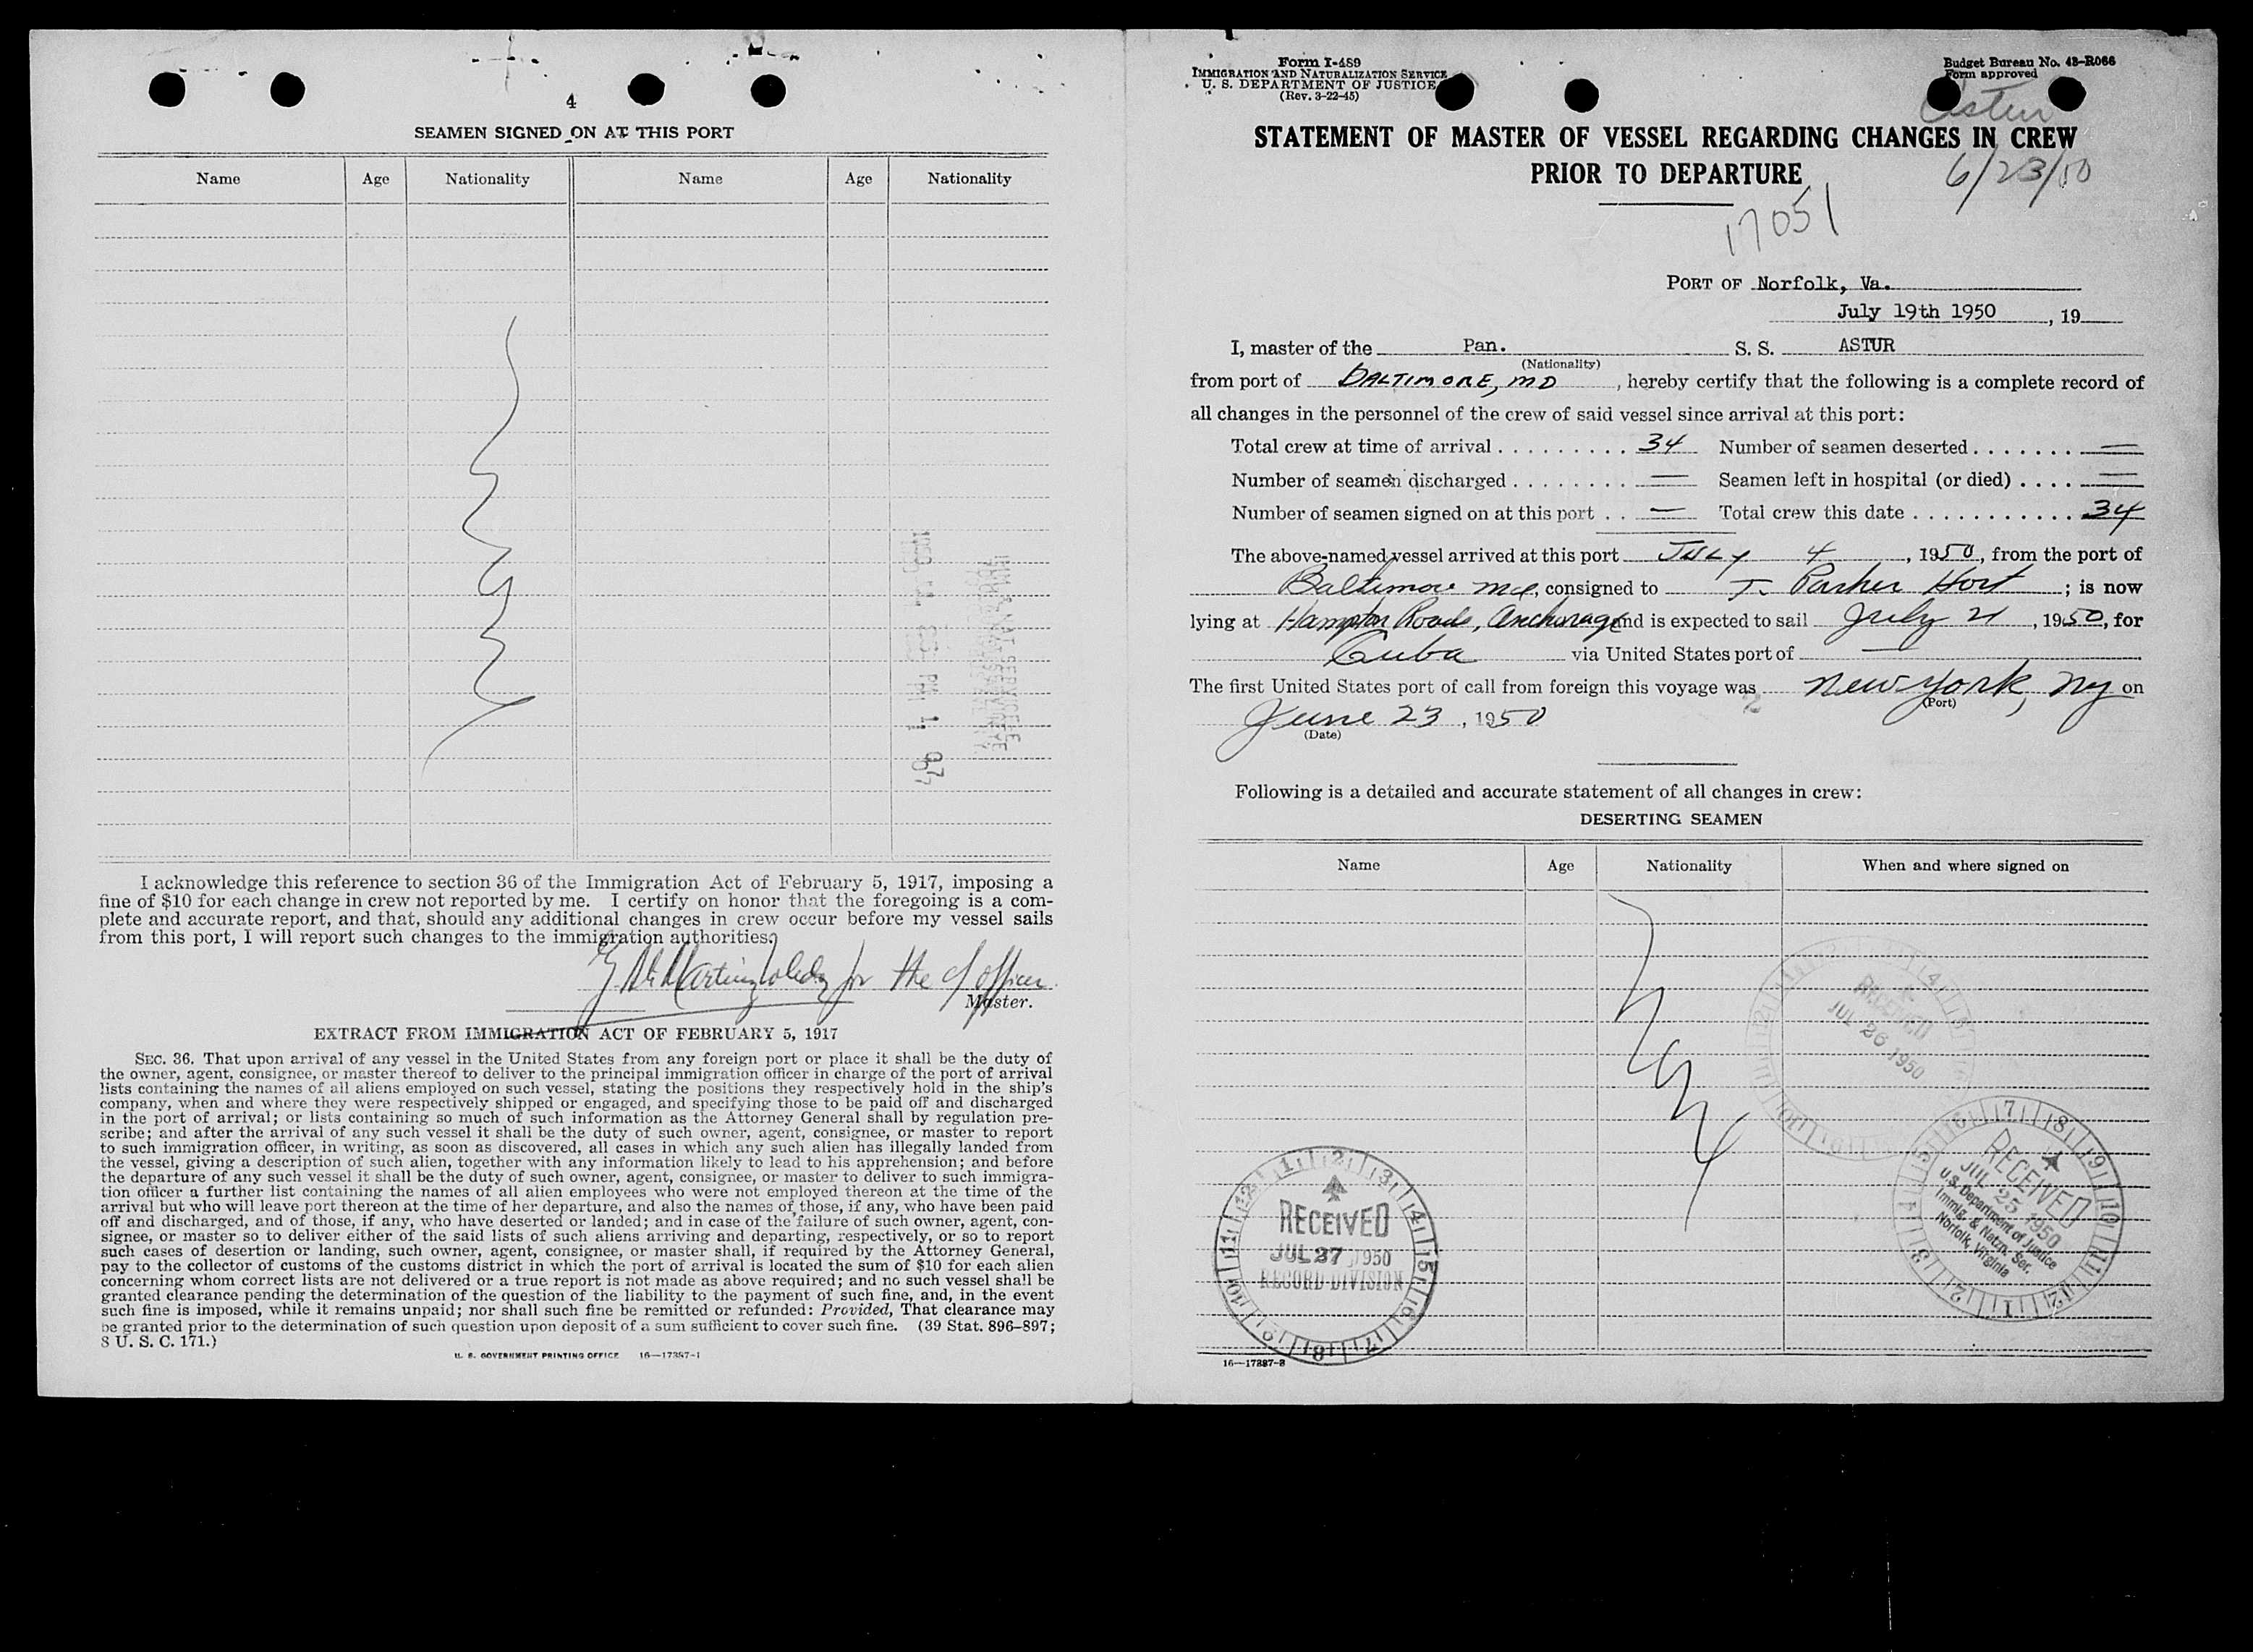 4
SEAMEN SIGNED ON AT THIS PORT
Name Age Nationality Name Age Nationality
I acknowledge this reference to section 36 of the Immigration Act of February 5, 1917, imposing a
fine of $10 for each change in crew not reported by me. I certify on honor that the foregoing is a com-
plete and accurate report, and that, should any additional changes in crew occur before my vessel sails
from this port, I will report such changes to the immigration authorities.
for the officer
Master.
EXTRACT FROM IMMIGRATION ACT OF FEBRUARY 5, 1917
SEC. 36. That upon arrival of any vessel in the United States from any foreign port or place it shall be the duty of
the owner, agent, consignee, or master thereof to deliver to the principal immigration officer in charge of the port of arrival
lists containing the names of all aliens employed on such vessel, stating the positions they respectively hold in the ship's
company, when and where they were respectively shipped or engaged, and specifying those to be paid off and discharged
in the port of arrival; or lists containing so much of such information as the Attorney General shall by regulation pre-
scribe; and after the arrival of any such vessel it shall be the duty of such owner, agent, consignee, or master to report
to such immigration officer, in writing, as soon as discovered, all cases in which any such alien has illegally landed from
the vessel, giving a description of such alien, together with any information likely to lead to his apprehension; and before
the departure of any such vessel it shall be the duty of such owner, agent, consignee, or master to deliver to such immigra-
tion officer a further list containing the names of all alien employees who were not employed thereon at the time of the
arrival but who will leave port thereon at the time of her departure, and also the names of those, if any, who have been paid
off and discharged, and of those, if any, who have deserted or landed; and in case of the failure of such owner, agent, con-
signee, or master so to deliver either of the said lists of such aliens arriving and departing, respectively, or so to report
such cases of desertion or landing, such owner, agent, consignee, or master shall, if required by the Attorney General,
pay to the collector of customs of the customs district in which the port of arrival is located the sum of $10 for each alien
concerning whom correct lists are not delivered or a true report is not made as above required; and no such vessel shall be
granted clearance pending the determination of the question of the liability to the payment of such fine, and, in the event
such fine is imposed, while it remains unpaid; nor shall such fine be remitted or refunded: Provided, That clearance may
be granted prior to the determination of such question upon deposit of a sum sufficient to cover such fine. (39 Stat. 896-897;
8 U. S. C. 171.)
U. S. GOVERNMENT PRINTING OFFICE 16—17387-1
Form I-489
IMMIGRATION AND NATURALIZATION SERVICE
U. S. DEPARTMENT OF JUSTICE
(Rev. 3-22-45)
Budget Bureau No. 43-R066
Form approved
Astur
STATEMENT OF MASTER OF VESSEL REGARDING CHANGES IN CREW
PRIOR TO DEPARTURE
6/23/50
17051
PORT OF Norfolk, Va.
July 19th 1950, 19
I, master of the Pan. S. S. ASTUR
(Nationality)
from port of BALTIMORE, MD, hereby certify that the following is a complete record of
all changes in the personnel of the crew of said vessel since arrival at this port:
Total crew at time of arrival . . . . . . . . . 34 Number of seamen deserted . . . . . . . —
Number of seamen discharged . . . . . . . . — Seamen left in hospital (or died) . . . . —
Number of seamen signed on at this port . . — Total crew this date . . . . . . . . . . . . 34
The above-named vessel arrived at this port JULY 4, 1950, from the port of
Baltimore Md, consigned to T. Parker Host; is now
lying at Hampton Roads, Anchorage and is expected to sail July 21, 1950, for
Cuba via United States port of —
The first United States port of call from foreign this voyage was New York, NY on
(Port)
June 23, 1950
(Date)
Following is a detailed and accurate statement of all changes in crew:
DESERTING SEAMEN
Name Age Nationality When and where signed on
RECEIVED
JUL 26 1950
RECEIVED
JUL 25 1950
U.S. Department of Justice
Immig. & Natzn. Ser.
Norfolk, Virginia
RECEIVED
JUL 27 1950
RECORD DIVISION
16—17387-3